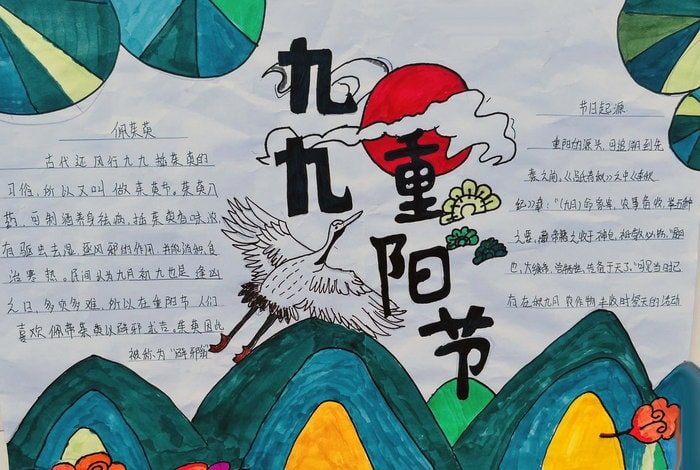 九九重阳节
佩茱萸
古代还风行九九插茱萸的
习俗,所以又叫做茱萸节。茱萸入
药,可制酒养身祛病。插茱萸香味浓
有驱虫去湿、逐风邪的作用,并能消积食
治寒热。民间认为九月初九也是逢凶
之日,多灾多难,所以在重阳节人们
喜欢佩带茱萸以辟邪求吉。茱萸因此
被称为“辟邪翁”
节日起源
重阳的源头,可追溯到先
秦之前。《吕氏春秋》之中《季秋
纪》载:“(九月)命家宰,农事备收,举五种
之要。藏帝籍之收于神仓,祗敬必饬。”“是日
也,大飨帝,尝牺牲,告备于天子。”可见当时已
有在秋九月农作物丰收时祭天的活动